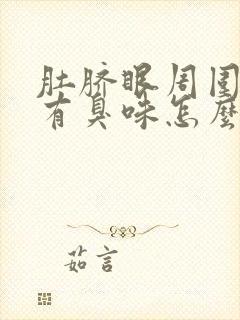 肚脐眼周围
有臭味怎麼
茹言